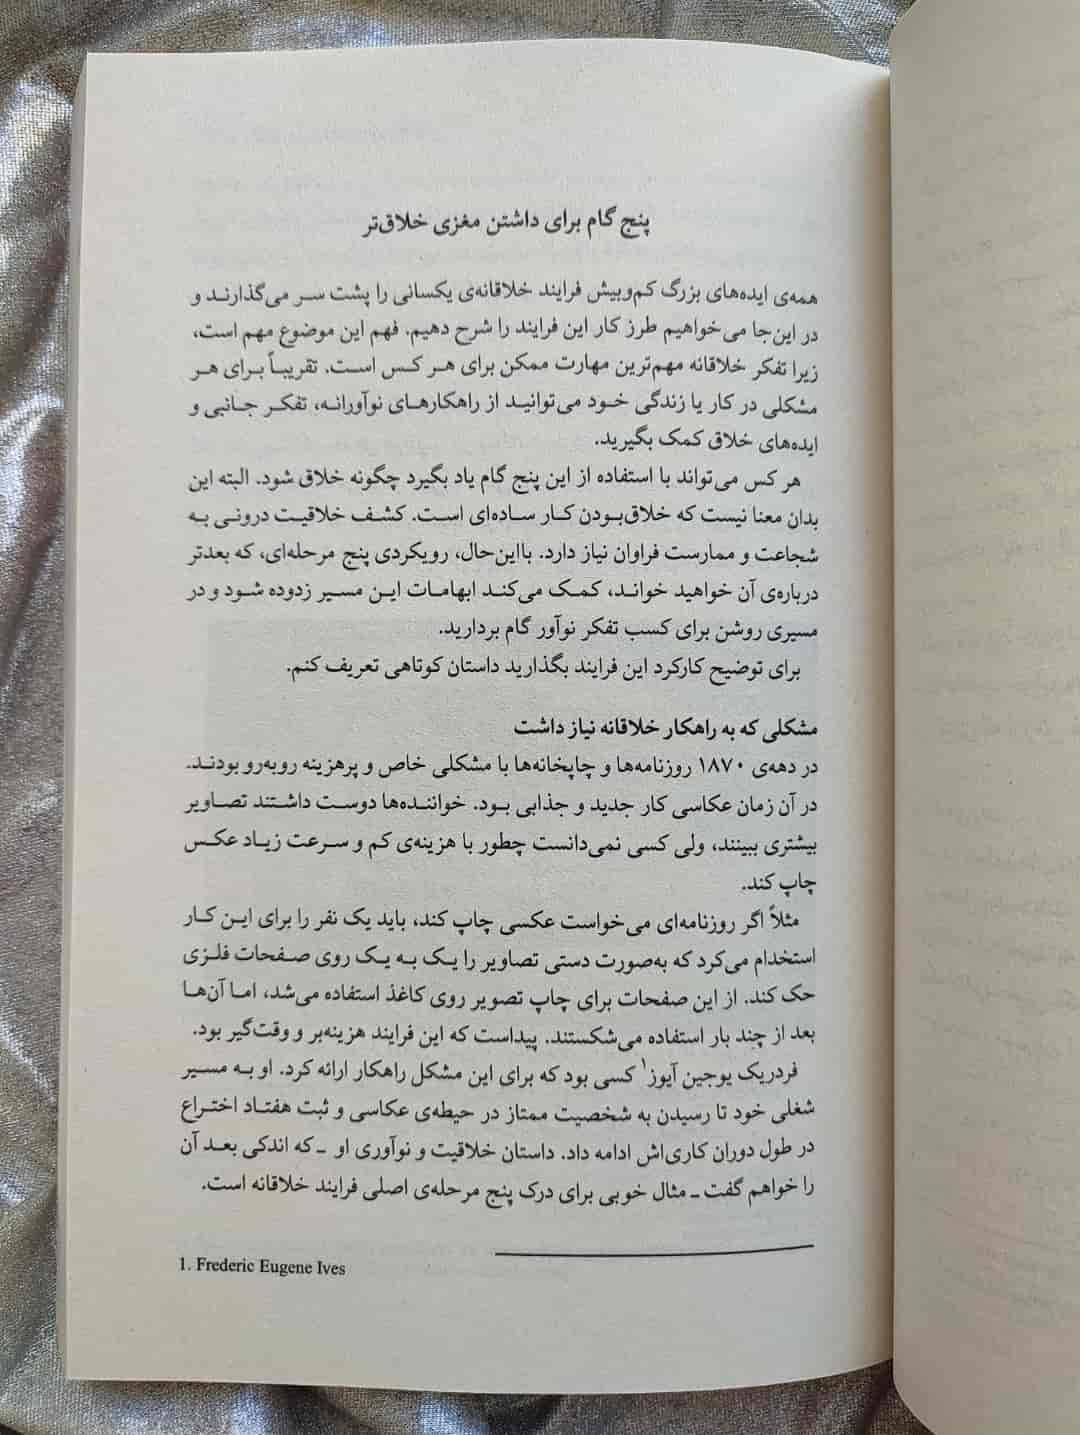 پنج گام برای داشتن مغزی خلاق‌تر
همه‌ی ایده‌های بزرگ کم‌وبیش فرایند خلاقانه‌ی یکسانی را پشت سر می‌گذارند و
در این‌جا می‌خواهیم طرز کار این فرایند را شرح دهیم. فهم این موضوع مهم است،
زیرا تفکر خلاقانه مهم‌ترین مهارت ممکن برای هر کس است. تقریباً برای هر
مشکلی در کار یا زندگی خود می‌توانید از راهکارهای نوآورانه، تفکر جانبی و
ایده‌های خلاق کمک بگیرید.
هر کس می‌تواند با استفاده از این پنج گام یاد بگیرد چگونه خلاق شود. البته این
بدان معنا نیست که خلاق‌بودن کار ساده‌ای است. کشف خلاقیت درونی به
شجاعت و ممارست فراوان نیاز دارد. بااین‌حال، رویکردی پنج مرحله‌ای، که بعدتر
درباره‌ی آن خواهید خواند، کمک می‌کند ابهامات این مسیر زدوده شود و در
مسیری روشن برای کسب تفکر نوآور گام بردارید.
برای توضیح کارکرد این فرایند بگذارید داستان کوتاهی تعریف کنم.
مشکلی که به راهکار خلاقانه نیاز داشت
در دهه‌ی ۱۸۷۰ روزنامه‌ها و چاپخانه‌ها با مشکلی خاص و پرهزینه روبه‌رو بودند.
در آن زمان عکاسی کار جدید و جذابی بود. خواننده‌ها دوست داشتند تصاویر
بیشتری ببینند، ولی کسی نمی‌دانست چطور با هزینه‌ی کم و سرعت زیاد عکس
چاپ کند.
مثلاً اگر روزنامه‌ای می‌خواست عکسی چاپ کند، باید یک نفر را برای این کار
استخدام می‌کرد که به‌صورت دستی تصاویر را یک به یک روی صفحات فلزی
حک کند. از این صفحات برای چاپ تصویر روی کاغذ استفاده می‌شد، اما آن‌ها
بعد از چند بار استفاده می‌شکستند. پیداست که این فرایند هزینه‌بر و وقت‌گیر بود.
فردریک یوجین آیوز¹ کسی بود که برای این مشکل راهکار ارائه کرد. او به مسیر
شغلی خود تا رسیدن به شخصیت ممتاز در حیطه‌ی عکاسی و ثبت هفتاد اختراع
در طول دوران کاری‌اش ادامه داد. داستان خلاقیت و نوآوری او ـ که اندکی بعد آن
را خواهم گفت ـ مثال خوبی برای درک پنج مرحله‌ی اصلی فرایند خلاقانه است.
1. Frederic Eugene Ives